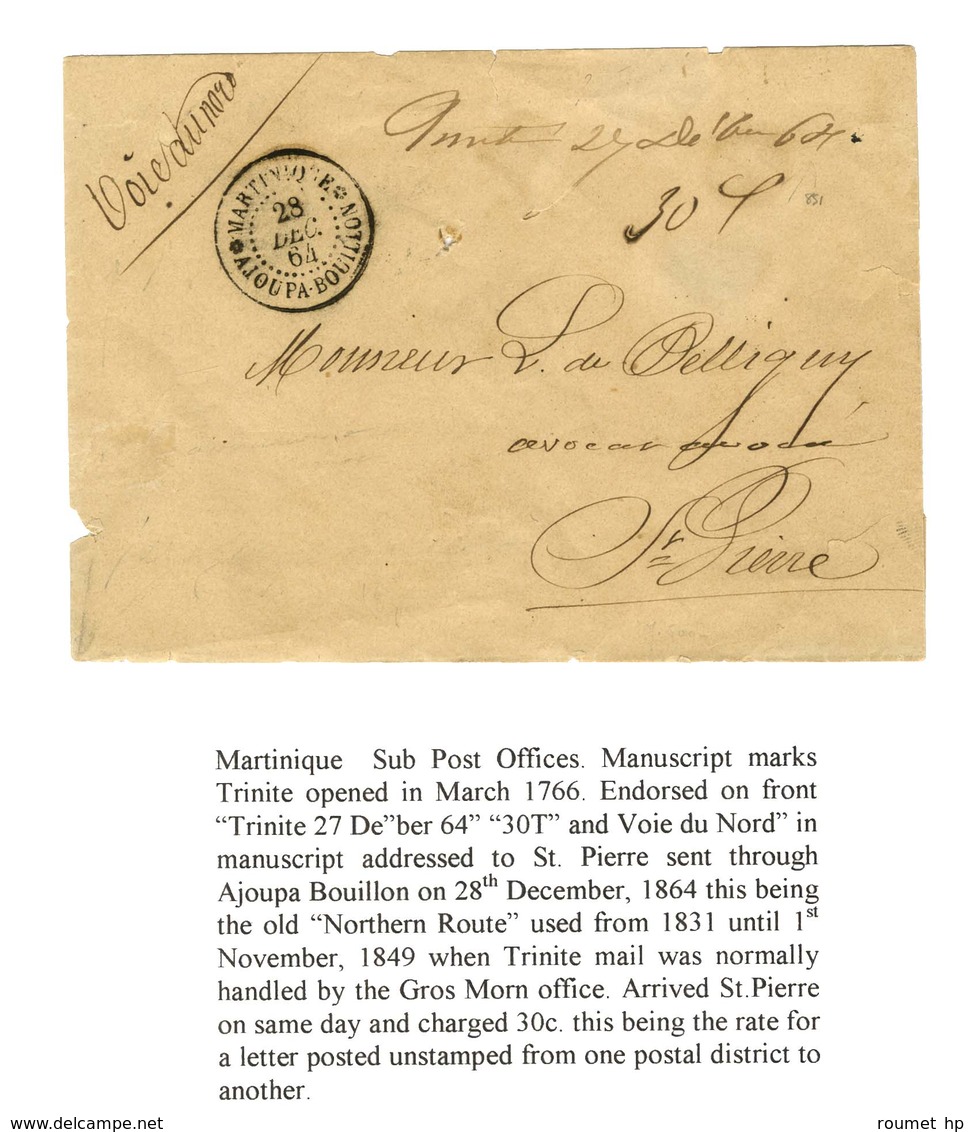 Voie du nord
Trinité 27 De'ber 64.
30 T
851
* MARTINIQUE *
28
DEC.
64
AJOUPA-BOUILLON
Monsieur L. de Pelligny
avocat avoué
St. Pierre
Martinique Sub Post Offices. Manuscript marks
Trinite opened in March 1766. Endorsed on front
“Trinite 27 De”ber 64” “30T” and Voie du Nord” in
manuscript addressed to St. Pierre sent through
Ajoupa Bouillon on 28th December, 1864 this being
the old “Northern Route” used from 1831 until 1st
November, 1849 when Trinite mail was normally
handled by the Gros Morn office. Arrived St.Pierre
on same day and charged 30c. this being the rate for
a letter posted unstamped from one postal district to
another.
delcampe.net
roumet hp